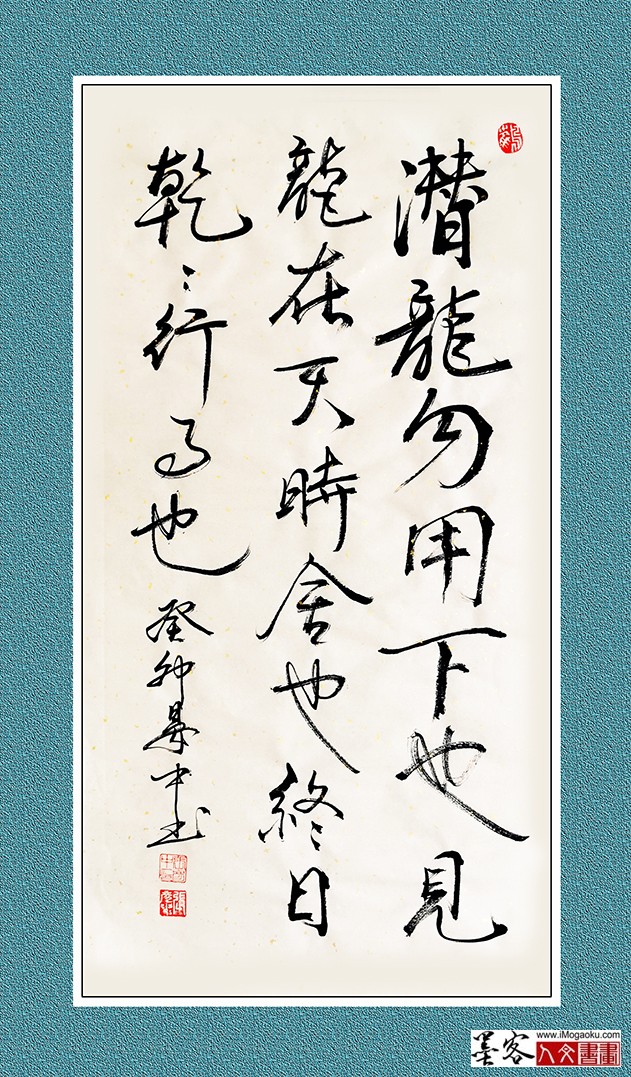 潛龍勿用下也見
龍在天時舍也終日
乾〻行事也
癸卯 中书
www.iMogaoku.com
墨客
人文書畫